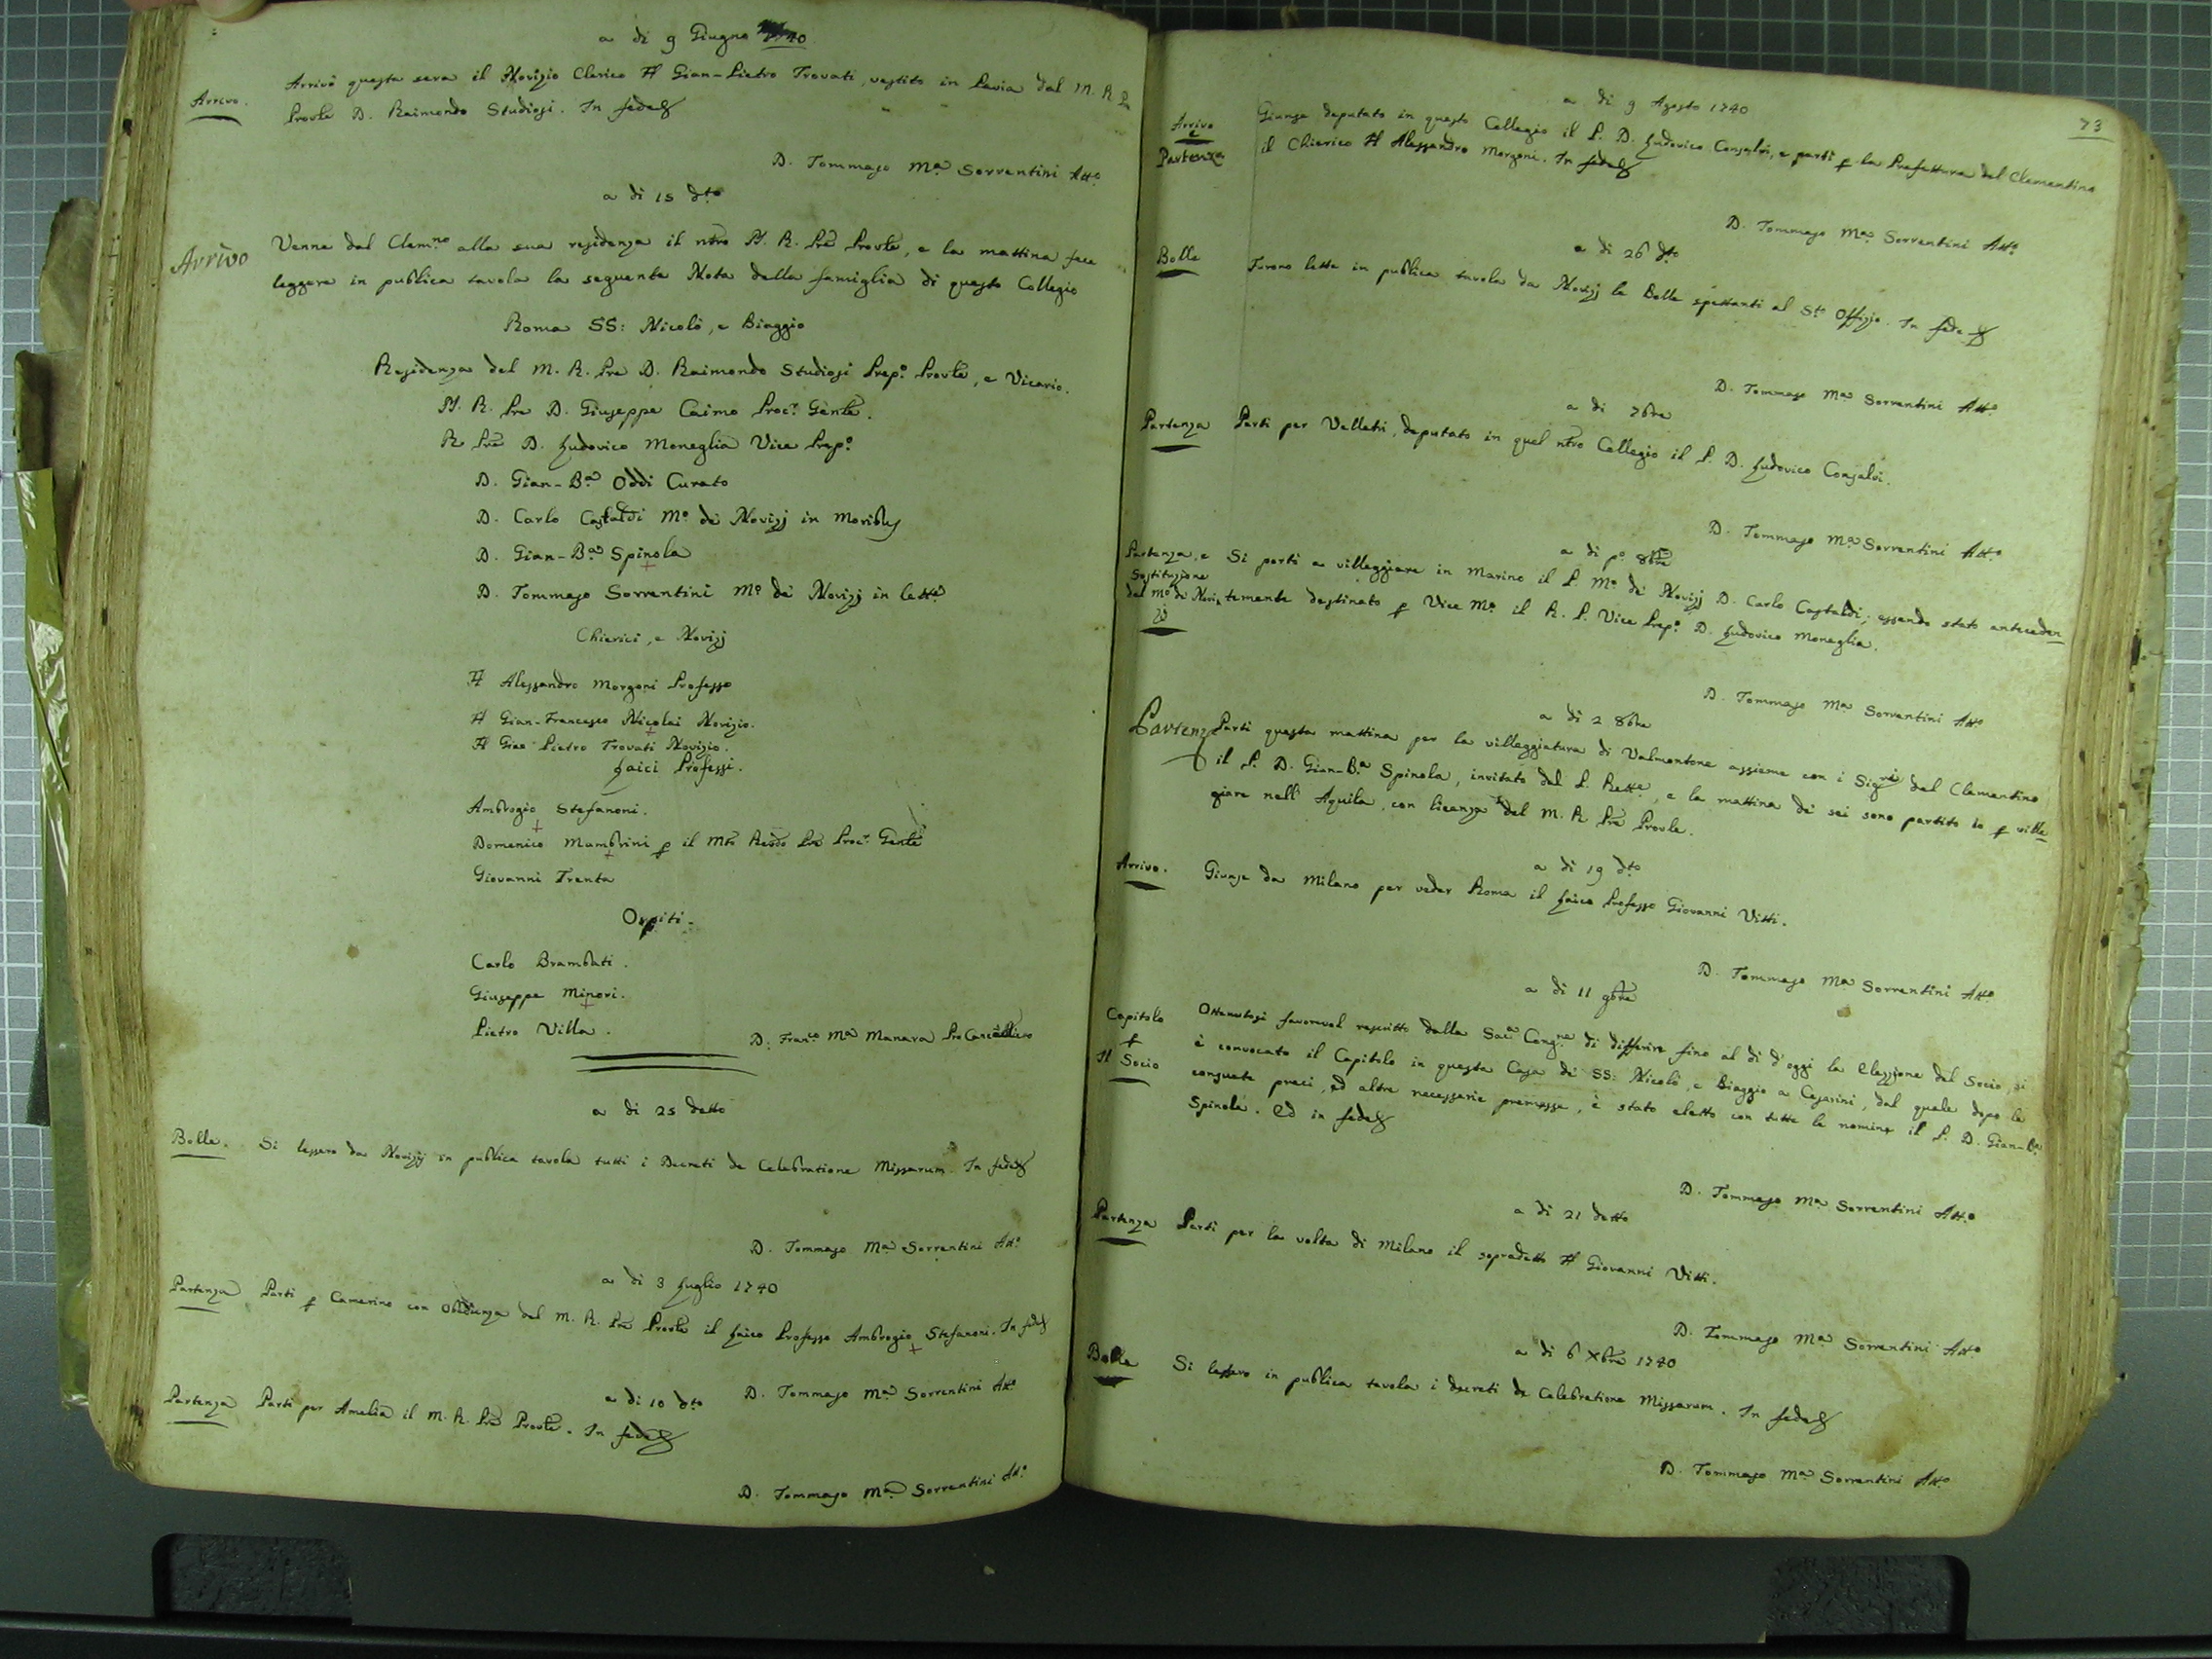 a di 9 Giugno 1740
Arrivo. Arrivò questa sera il Novizio Clerico Fl Gian-Pietro Trovati, vestito in Pavia dal M. R. Pre
Provle D. Raimondo Studiosi. In fede
D. Tommaso Ma Sorrentini Atto
a di 15 dto
Arrivo Venne dal Clemno alla sua residenza il ntro M. R. Pre Provle, e la mattina fece
leggere in publica tavola la seguente Nota della famiglia di questo Collegio
Roma SS: Nicolò, e Biaggio
Residenza del M. R. Pre D. Raimondo Studiosi Prepo Provle, e Vicario.
M. R. Pre D. Giuseppe Caimo Procr Genle.
R. Pre D. Ludovico Moneglia Vice Prepo
D. Gian-Ba Oddi Curato
D. Carlo Castaldi Mo de Novizj in Moribus
D. Gian-Ba Spinola
D. Tommaso Sorrentini Mo de Novizj in Lette
Chierici, e Novizj
Fl Alessandro Morzoni Professo
Fl Gian-Francesco Nicolai Novizio.
Fl Gian Pietro Trovati Novizio.
Laici Professi.
Ambrogio Stefanoni.
Domenico Mambrini p il Mto Revdo Pre Procr Genle
Giovanni Trenta
Ospiti.
Carlo Brambati.
Giuseppe Minori.
Pietro Villa.
D: Franco Ma Manara ProCancelliero
a di 25 detto
Bolle. Si lessero da Novizj in publica tavola tutti i Decreti de Celebratione Missarum. In fede
D. Tommaso Ma Sorrentini Atto
a di 3 Luglio 1740
Partenza Partì p Camerino con Obedienza del M. R. Pre Provle il Laico Professo Ambrogio Stefanoni. In fede
D. Tommaso Ma Sorrentini Atto
a di 10 dto
Partenza Partì per Amelia il M. R. Pre Provle. In fede
D. Tommaso Ma Sorrentini Atto
73
a di 9 Agosto 1740
Arrivo e Partenza
Giunse deputato in questo Collegio il P. D. Ludovico Consalvi, e partì p la Prefettura del Clementino
il Chierico Fl Alessandro Morzoni. In fede
D. Tommaso Ma Sorrentini Atto
a di 26 dto
Bolle Furono lette in publica tavola da Novizj le Bolle spettanti al Sto Offizio. In fede
D. Tommaso Ma Sorrentini Atto
a di 7bre
Partenza Partì per Velletri, deputato in quel ntro Collegio il P. D. Ludovico Consalvi.
D. Tommaso Ma Sorrentini Atto
a di po 8bre
Partenza, e Sostituzione del Mo de Novizj
Si partì a villeggiare in Marino il P. Mo de Novizj D. Carlo Castaldi; essendo stato anteceden
temente destinato p Vice Mo il R. P. Vice Prepo D. Ludovico Moneglia.
D. Tommaso Ma Sorrentini Atto
a di 2 8bre
Partenza Partì questa mattina per la villeggiatura di Valmontone assieme con i Sigri del Clementino
il P. D. Gian-Ba Spinola, invitato dal P. Rette, e la mattina de sei sono partito io p ville
giare nell' Aquila, con licenza del M. R. Pre Provle.
a di 19 dto
Arrivo. Giunse da Milano per veder Roma il Laico Professo Giovanni Vitti.
D. Tommaso Ma Sorrentini Atto
a di 11 9bre
Capitolo p il Socio
Ottenutosi favorevol rescritto dalla Saca Congne di differire fino al di d'oggi la Elezzione del Socio, si
è convocato il Capitolo in questa Casa de SS: Nicolò, e Biaggio a Cesarini, dal quale dopo le
consuete preci, ed altre necessarie premesse, è stato eletto con tutte le nomine il P. D. Gian-Ba
Spinola. Ed in fede
D. Tommaso Ma Sorrentini Atto
a di 21 detto
Partenza Partì per la volta di Milano il sopradetto Fl Giovanni Vitti.
D. Tommaso Ma Sorrentini Atto
a di 6 Xbre 1740
Bolle Si lessero in publica tavola i decreti de Celebratione Missarum. In fede
D. Tommaso Ma Sorrentini Atto